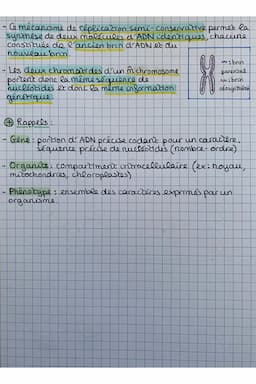 - Ce mécanisme de réplication semi-conservative permet la
synthèse de deux molécules d'ADN identiques, chacune
constituée de l'ancien brin d'ADN et du
nouveau brin
- Les deux chromatides d'un m̂ chromosome
portent donc la même séquence de
nucléotides et dont la même information
génétique.
m: brin
parental
m: brin
néosynthétisé
⊕ Rappels :
- Gène : portion d'ADN précise codant pour un caractère,
séquence précise de nucléotides (nombre - ordre)
- Organite : compartiment intracellulaire (ex : noyau,
mitochondries, chloroplastes)
- Phénotype : ensemble des caractères exprimés par un
organisme.